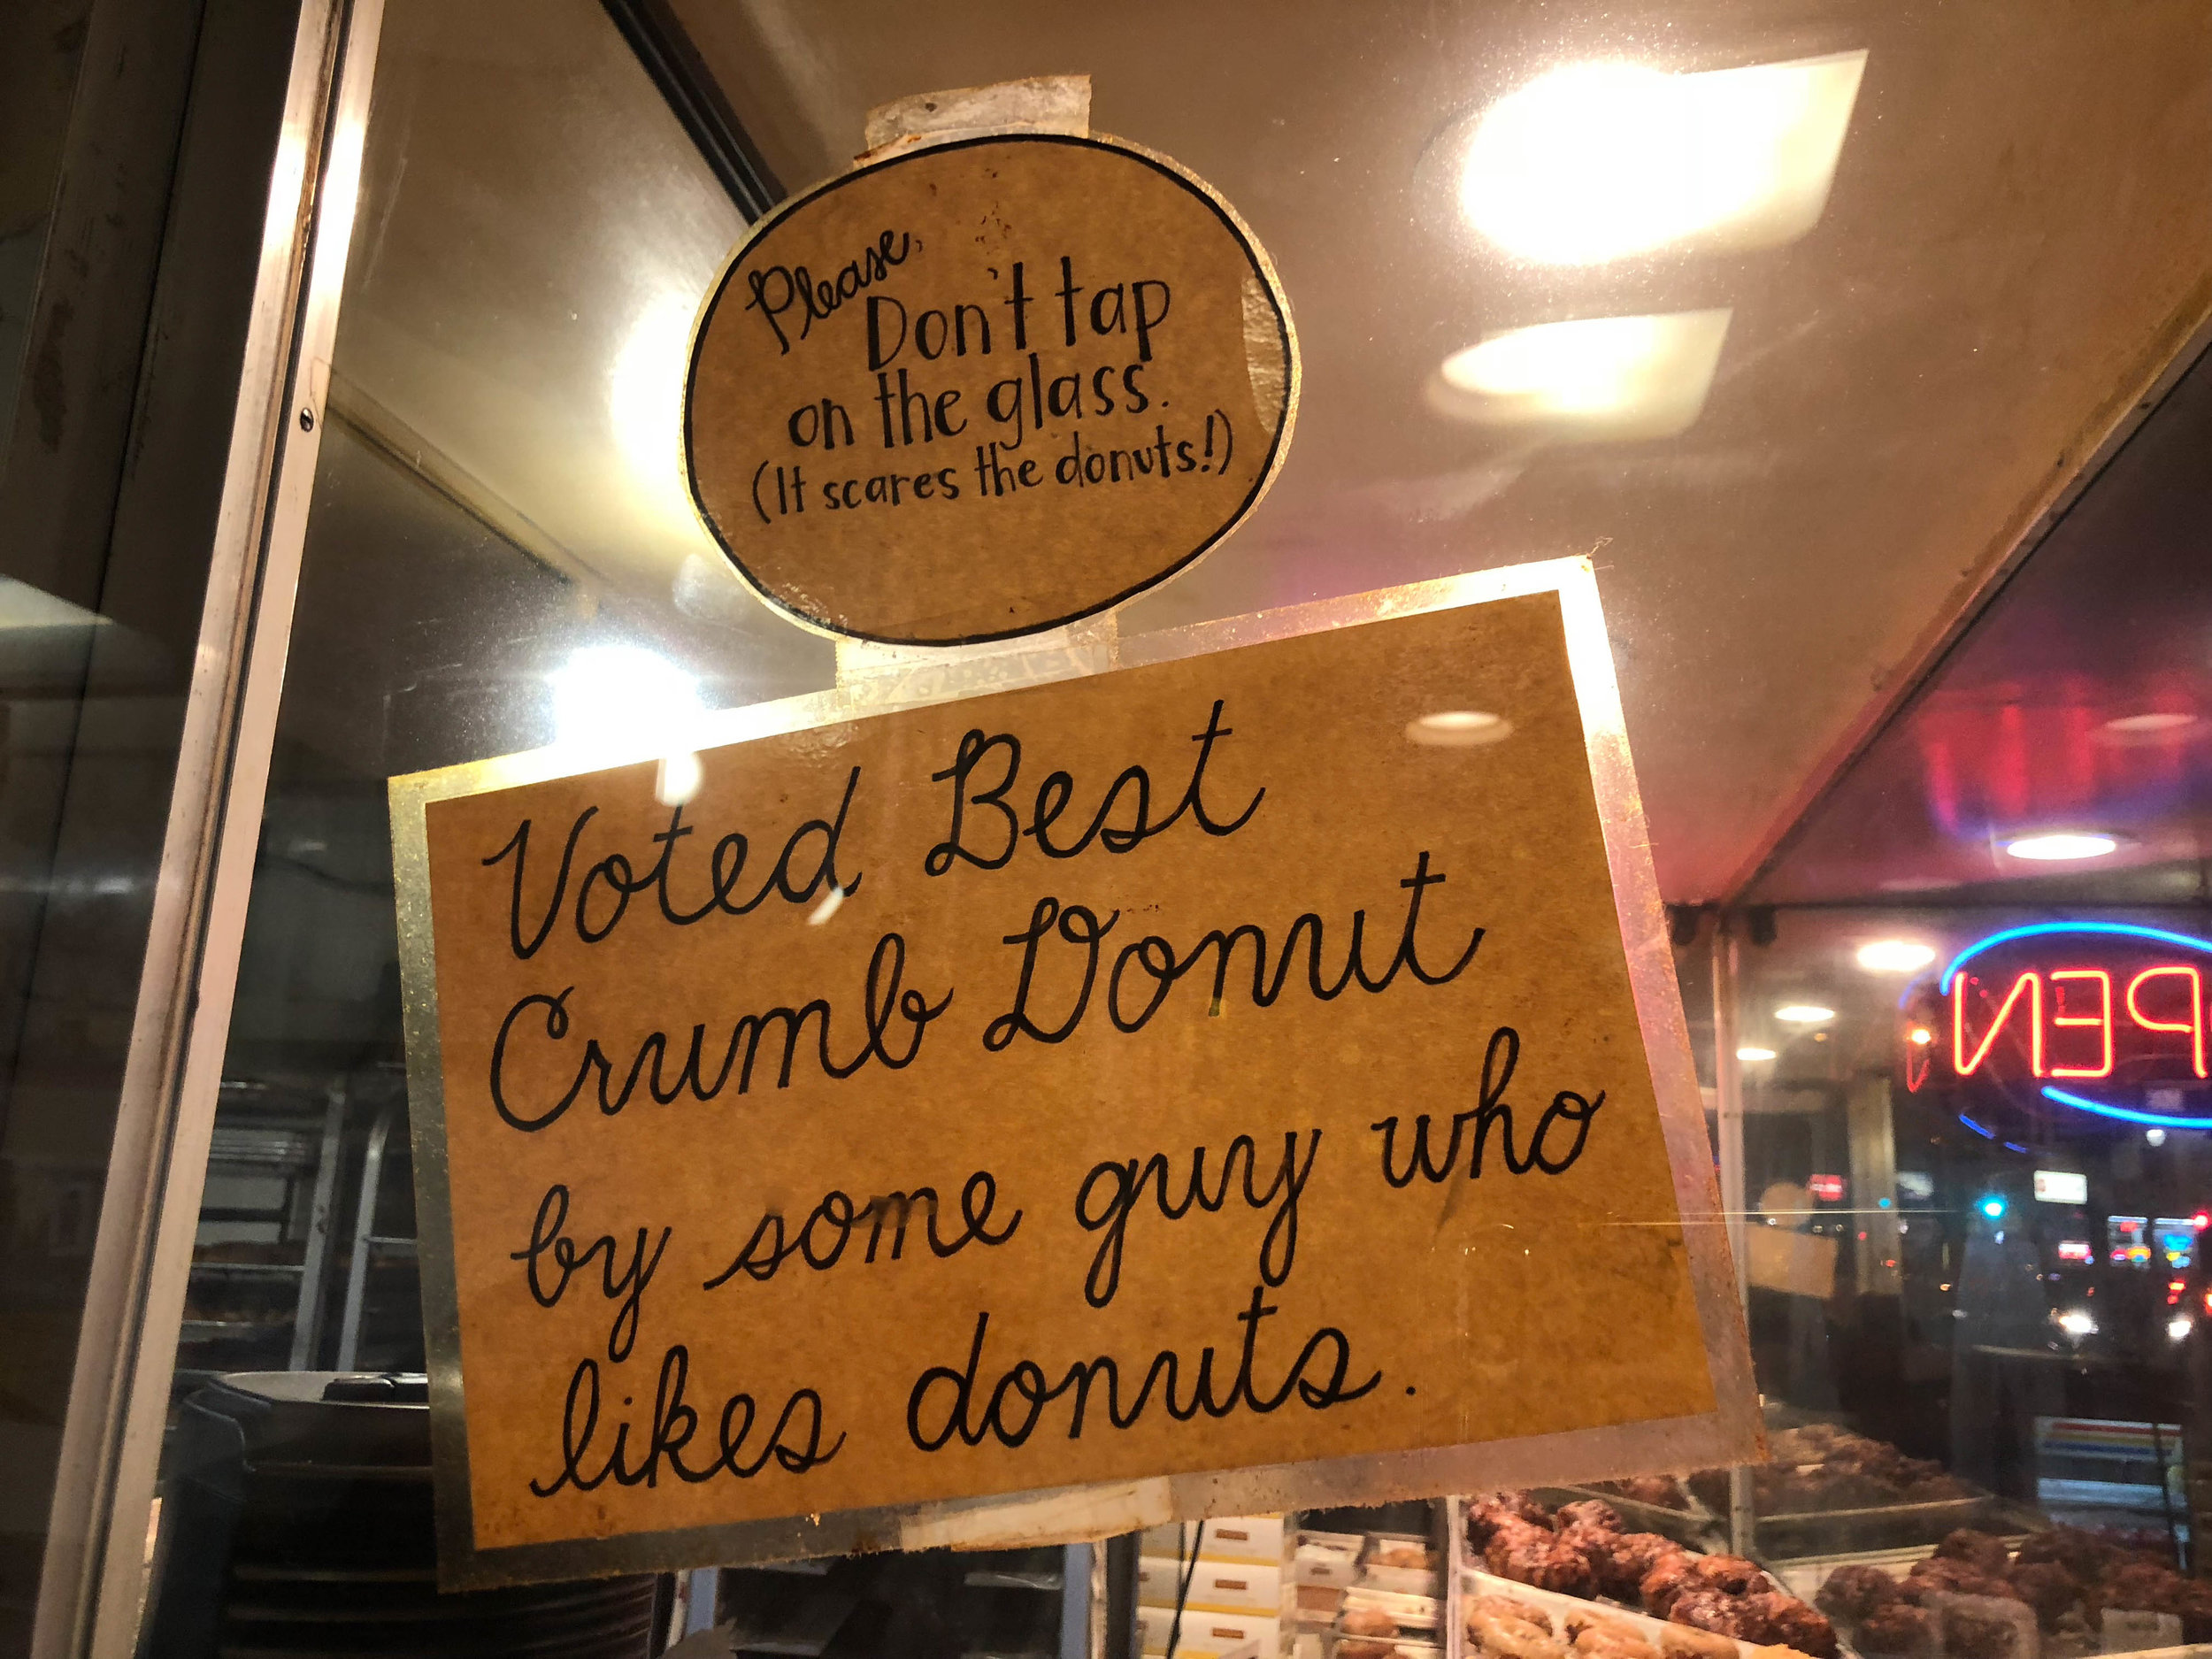 Please,
Don't tap
on the glass.
(It scares the donuts!)
Voted Best
Crumb Donut
by some guy who
likes donuts.
PEN